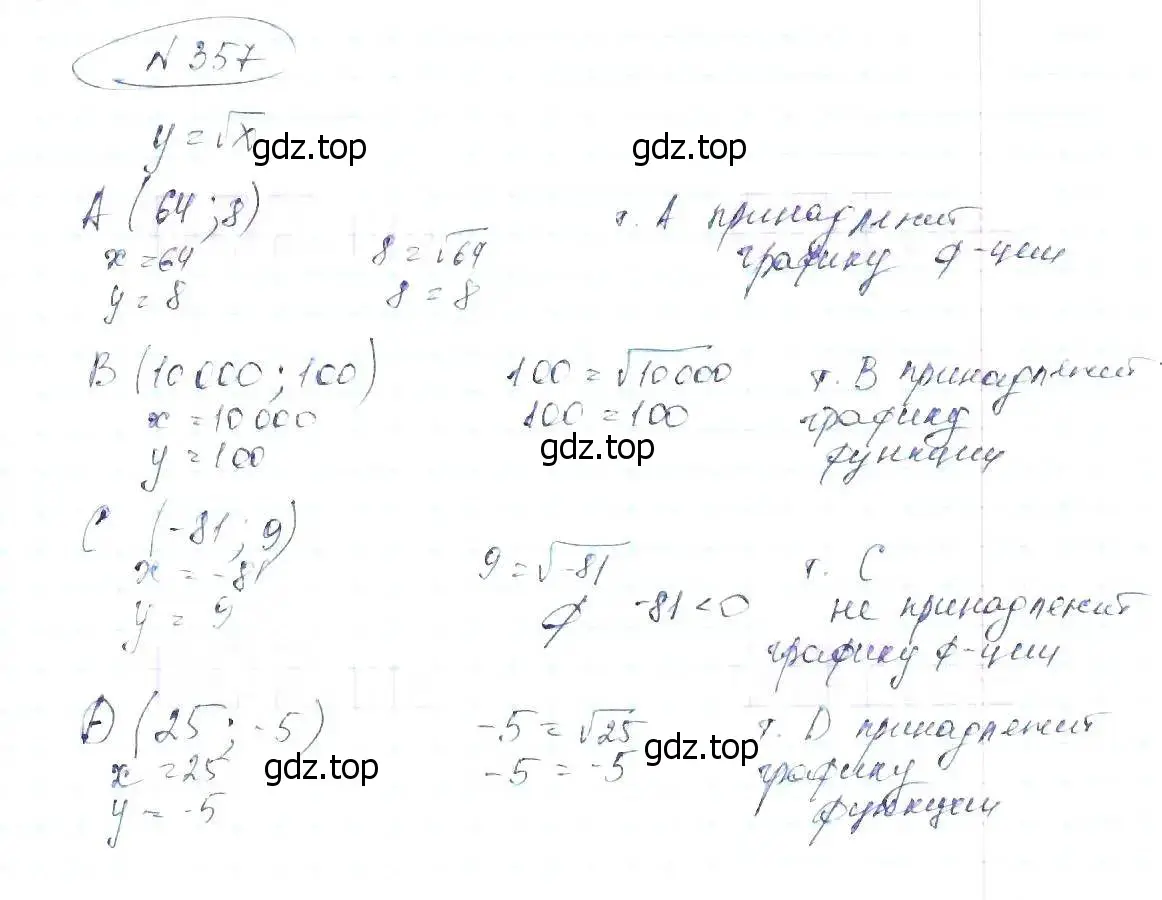 N 357
y = √x
gdz.top
gdz.top
A (64 ; 8)
т. A принадлежит
x = 64
8 = √64
графику ф-ции
y = 8
8 = 8
B (10 000 ; 100)
100 = √10 000
т. B принадлежит
x = 10 000
100 = 100
графику
y = 100
gdz.top
функции
C (-81 ; 9)
x = -81
9 = √-81
т. C
y = 9
∅ -81 < 0
не принадлежит
графику ф-ции
D (25 ; -5)
-5 = √25
gdz.top
т. D принадлежит
x = 25
gdz.top
-5 = -5
графику
y = -5
функции